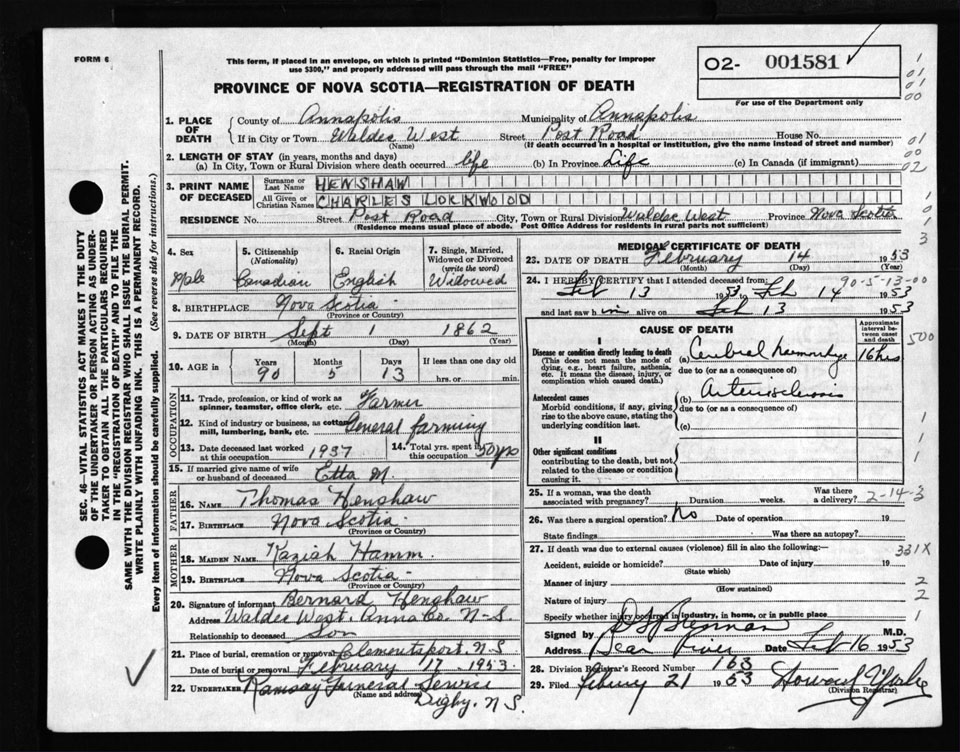 FORM 6
This form, if placed in an envelope, on which is printed "Dominion Statistics—Free, penalty for improper
use $300," and properly addressed will pass through the mail "FREE"
O2- 001581
For use of the Department only
PROVINCE OF NOVA SCOTIA—REGISTRATION OF DEATH
1. PLACE OF DEATH
County of Annapolis Municipality of Annapolis
If in City or Town Waldec West Street Post Road House No.
(Name) (If death occurred in a hospital or institution, give the name instead of street and number)
2. LENGTH OF STAY (in years, months and days)
(a) In City, Town or Rural Division where death occurred life (b) In Province Life (c) In Canada (if immigrant)
3. PRINT NAME OF DECEASED
Surname or Last Name HENSHAW
All Given or Christian Names CHARLES LOCKWOOD
RESIDENCE No. Street Post Road City, Town or Rural Division Waldec West Province Nova Scotia
(Residence means usual place of abode. Post Office Address for residents in rural parts not sufficient)
SEC. 46—VITAL STATISTICS ACT MAKES IT THE DUTY
OF THE UNDERTAKER OR PERSON ACTING AS UNDER-
TAKER TO OBTAIN ALL THE PARTICULARS REQUIRED
IN THE "REGISTRATION OF DEATH" AND TO FILE THE
SAME WITH THE DIVISION REGISTRAR WHO SHALL ISSUE THE BURIAL PERMIT.
WRITE PLAINLY WITH UNFADING INK. THIS IS A PERMANENT RECORD.
Every item of information should be carefully supplied. (See reverse side for instructions.)
4. Sex Male
5. Citizenship (Nationality) Canadian
6. Racial Origin English
7. Single, Married, Widowed or Divorced (write the word) Widowed
8. BIRTHPLACE Nova Scotia
(Province or Country)
9. DATE OF BIRTH Sept 1 1862
(Month) (Day) (Year)
10. AGE in Years 90 Months 5 Days 13 If less than one day old hrs. or min.
OCCUPATION
11. Trade, profession, or kind of work as spinner, teamster, office clerk, etc. Farmer
12. Kind of industry or business, as cotton mill, lumbering, bank, etc. General farming
13. Date deceased last worked at this occupation 1937
14. Total yrs. spent in this occupation 50 yrs
15. If married give name of wife or husband of deceased Etta M.
FATHER
16. NAME Thomas Henshaw
17. BIRTHPLACE Nova Scotia
(Province or Country)
MOTHER
18. MAIDEN NAME Kaziah Hamm.
19. BIRTHPLACE Nova Scotia
(Province or Country)
20. Signature of informant Bernard Henshaw
Address Waldec West. Anna Co. N-S.
Relationship to deceased Son
21. Place of burial, cremation or removal Clementsport, N.S
Date of burial or removal February 17 - 1953.
22. UNDERTAKER Ramsay Funeral Service
(Name and address) Digby, N.S.
MEDICAL CERTIFICATE OF DEATH
23. DATE OF DEATH February 14 1953
(Month) (Day) (Year)
24. I HEREBY CERTIFY that I attended deceased from: 90-5-13-00
Feb 13 1953 Feb 14 1953
and last saw him alive on Feb 13 1953
CAUSE OF DEATH
Approximate interval between onset and death
I
Disease or condition directly leading to death
(This does not mean the mode of
dying, e.g., heart failure, asthenia,
etc. It means the disease, injury, or
complication which caused death.)
(a) Cerebral hemorrhage 16 hrs
due to (or as a consequence of)
Antecedent causes
Morbid conditions, if any, giving
rise to the above cause, stating the
underlying condition last.
(b) Arteriosclerosis
due to (or as a consequence of)
(c)
II
Other significant conditions
contributing to the death, but not
related to the disease or condition
causing it.
25. If a woman, was the death associated with pregnancy? Duration weeks. Was there a delivery? 2-14-3
26. Was there a surgical operation? No Date of operation 19
State findings Was there an autopsy?
27. If death was due to external causes (violence) fill in also the following:— 331X
Accident, suicide or homicide? Date of injury 19
(State which)
Manner of injury
(How sustained)
Nature of injury
Specify whether injury occurred in industry, in home, or in public place
Signed by M.D.
Address Bear River Date Feb 16 1953
28. Division Registrar's Record Number 163
29. Filed February 21 1953 Howard
(Division Registrar)
1
01
01
00
01
00
02
3
500
1
1
2
2
1